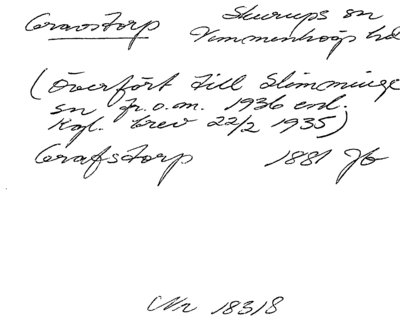 Gravstorp Skurups sn
Vemmenhögs hd
(Överfört till Slimminge
sn fr.o.m. 1936 enl.
Kgl. brev 22/2 1935)
Grafstorp 1881 Jb
Nr 18318